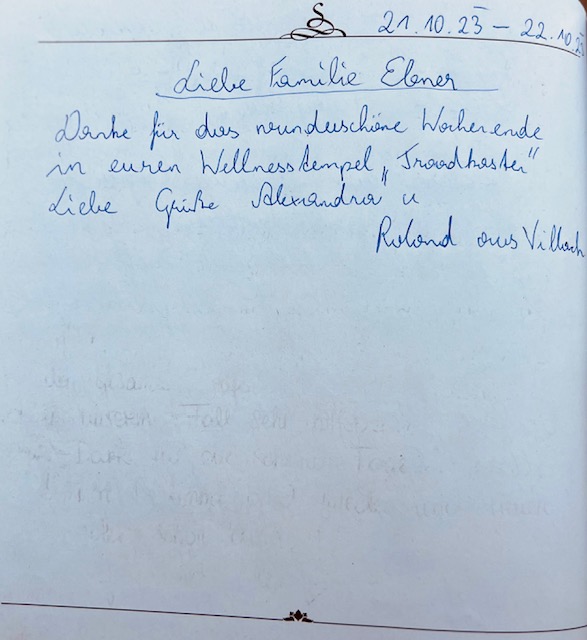 21.10.23 – 22.10.23
Liebe Familie Ebner
Danke für das wunderschöne Wochenende
in euren Wellnesstempel „Troadkasten"
Liebe Grüße Alexandra u
Roland aus Villach